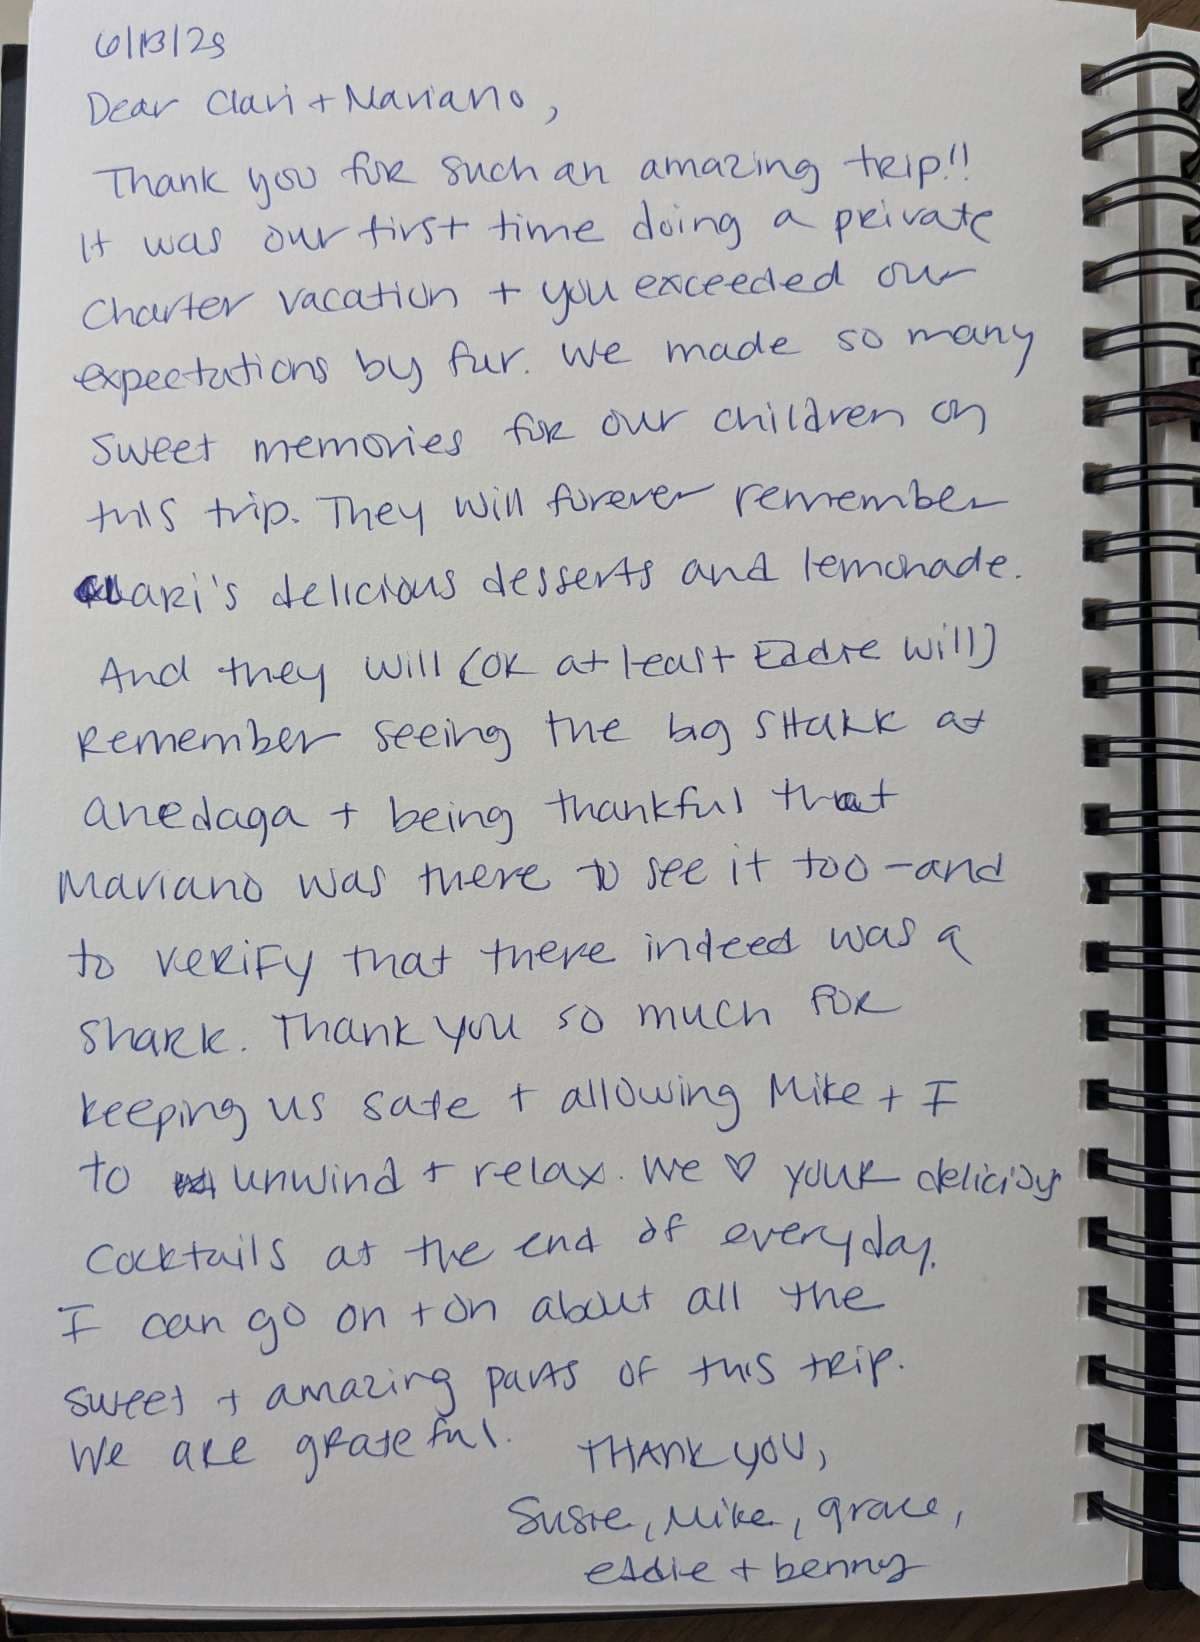 6/13/25
Dear Clari + Mariano,
Thank you for such an amazing trip!!
It was our first time doing a private
charter vacation + you exceeded our
expectations by far. We made so many
sweet memories for our children on
this trip. They will forever remember
Clari's delicious desserts and lemonade.
And they will (or at least Eddie will)
remember seeing the big SHARK at
anedaga + being thankful that
Mariano was there to see it too - and
to verify that there indeed was a
shark. Thank you so much for
keeping us safe + allowing Mike + I
to unwind + relax. We ♡ your delicious
cocktails at the end of everyday.
I can go on + on about all the
sweet + amazing parts of this trip.
We are grateful.
THANK YOU,
Susie, Mike, grace,
eddie + benny